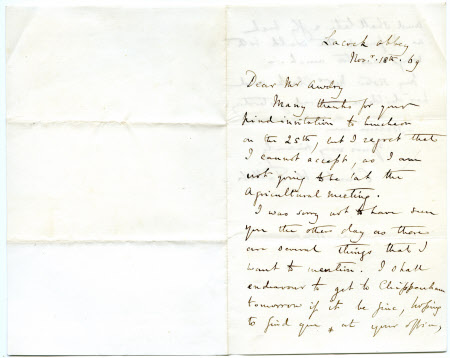 Lacock Abbey
Novr. 18th. 69
Dear Mr Awdry
Many thanks for your
kind invitation to luncheon
on the 25th, but I regret that
I cannot accept, as I am
not going to be at the
Agricultural meeting.
I was sorry not to have seen
you the other day as there
are several things that I
want to mention. I shall
endeavour to get to Chippenham
tomorrow if it be fine, hoping
to find you at your office,